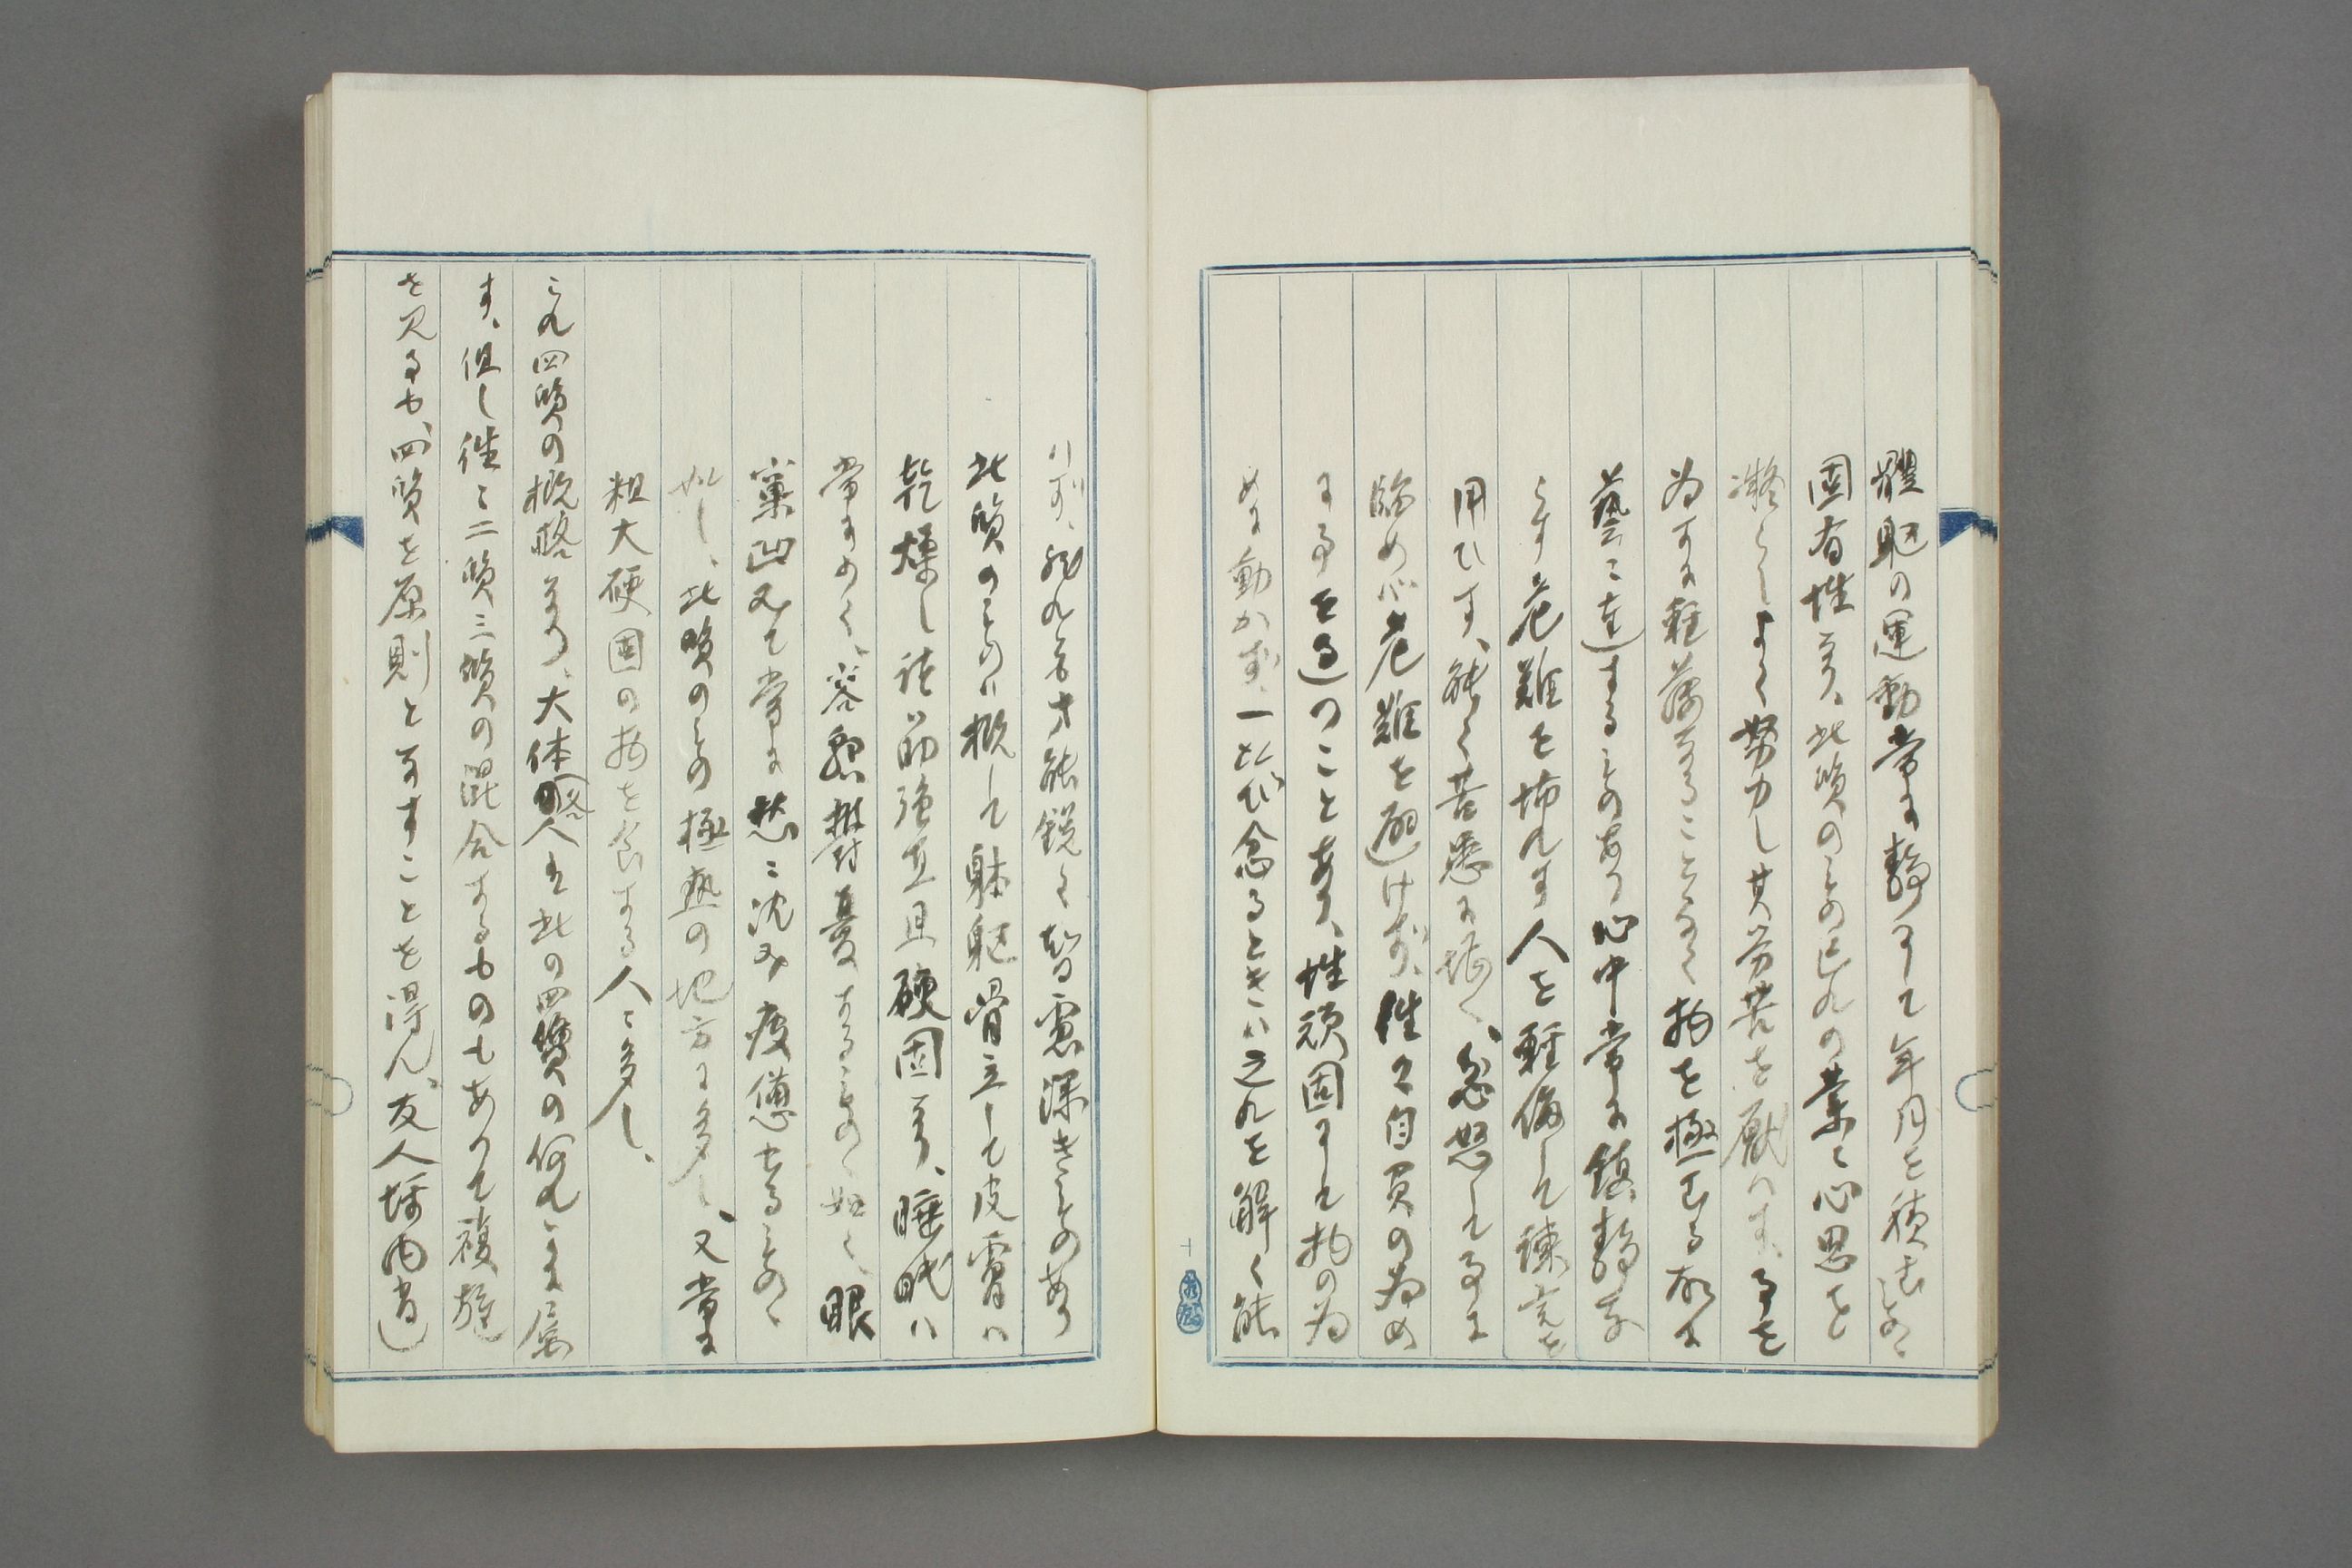 體軀の運動常に静にして年月を積
固有性なり、此質のもの己れの業に心思を
凝らしよく努力し其労苦を厭はす、事を
為すに軽薄なることなく物を極むる故に
藝に達するものあり心中常に鎮静な
らす危難を怖れす人を軽侮して諫言を
用ひす、能く苦患に堪へ、忿怒して事に
臨め心危難を避けず、往々自負の為め
に事を過つことあり、性頑固にして物の為
めに動かず、一たび念るときハ之れを解く能
はず、然れ者才能鋭く智慮深きものあり
此質のものハ概して躰軀骨立して皮膚ハ
乾燥し 筋強直且硬固なり、睡眠ハ
常すめく、容貌 憂するもの如く、眼
窠凹みて常に愁に沈み疲憊せるものゝ
如し、此質のもの極熱の地方に多し、又常に
粗大硬固の物を食する人に多し、
これ四質の概略なり、大体人は此の四質の何れに属
す、但し往々二質三質の混合するものもありて複雑
を見るも、四質を原則となすことを得ん、友人坪内